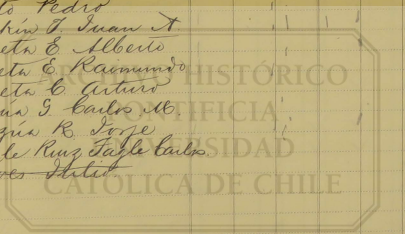 to Pedro
J. Juan A.
eta E Alberto
eta E. Raimundo
eta C Arturo
G Carlos M.
R. Jorje
le Ruiz Tagle Carlos.
Julio
ARCHIVO HISTÓRICO
PONTIFICIA
UNIVERSIDAD
CATÓLICA DE CHILE